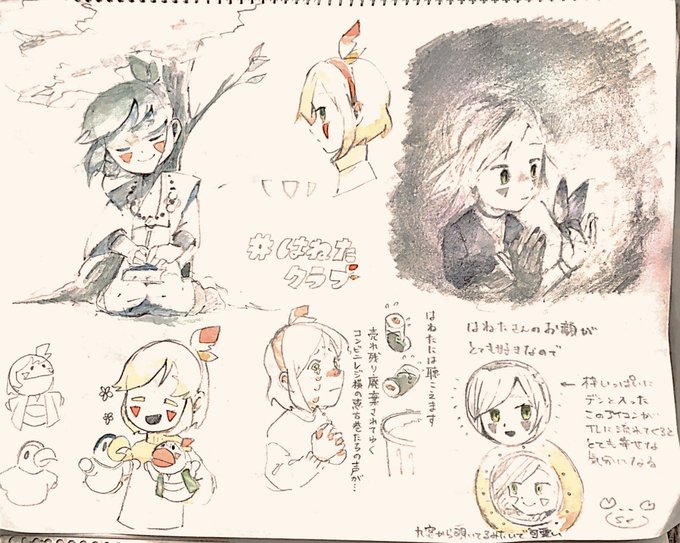 #はねた
クラブ
はねたには聴こえます
売れ残り廃棄されてゆく
コンビニレジ横の恵方巻たちの声が…
はねたさんのお顔が
とても好きなので
← 枠いっぱいに
デンと入った
このアイコンが
TLに流れてくると
とても幸せな
気分になる
丸窓から覗いてるみたいで可愛い